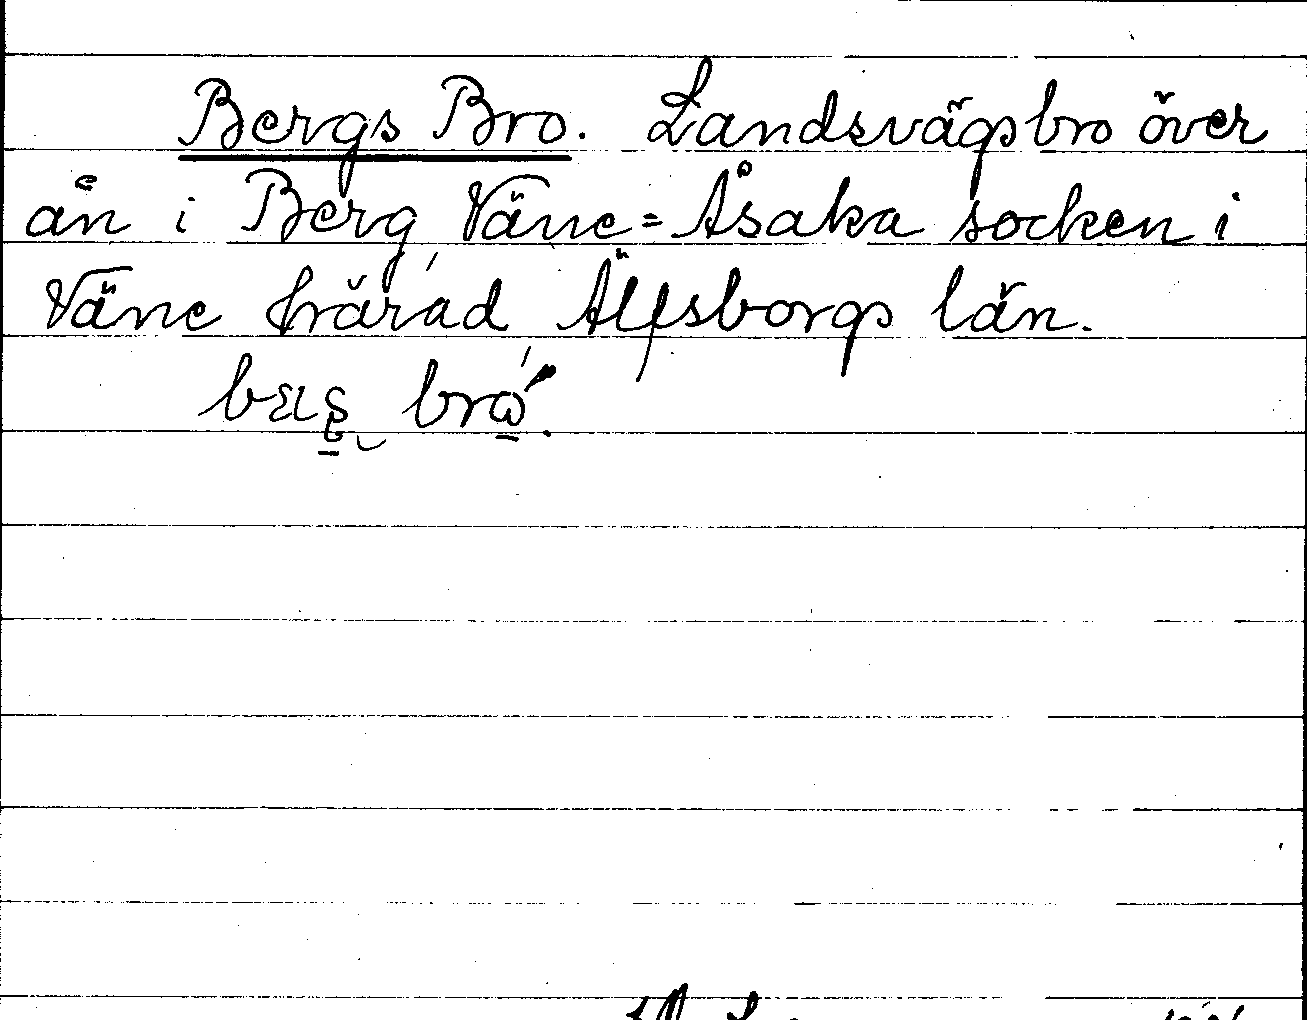 Bergs Bro. Landsvägsbro över
ån i Berg, Väne=Åsaka socken i
Väne härad Älfsborgs län.